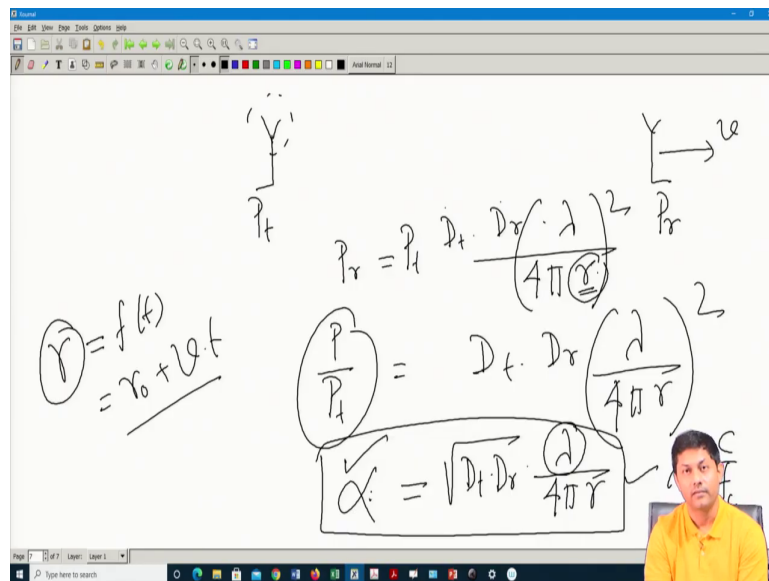 Xournal
File Edit View Page Tools Options Help
Arial Normal 12
P_t
v
P_r
P_r = P_t D_t · D_r (· λ / 4π r)^2
r = f(t)
= r_0 + v · t
P / P_t = D_t · D_r (λ / 4π r)^2
α = √D_t · D_r · λ / 4π r
C
Page 7 of 7 Layer: Layer 1
Type here to search